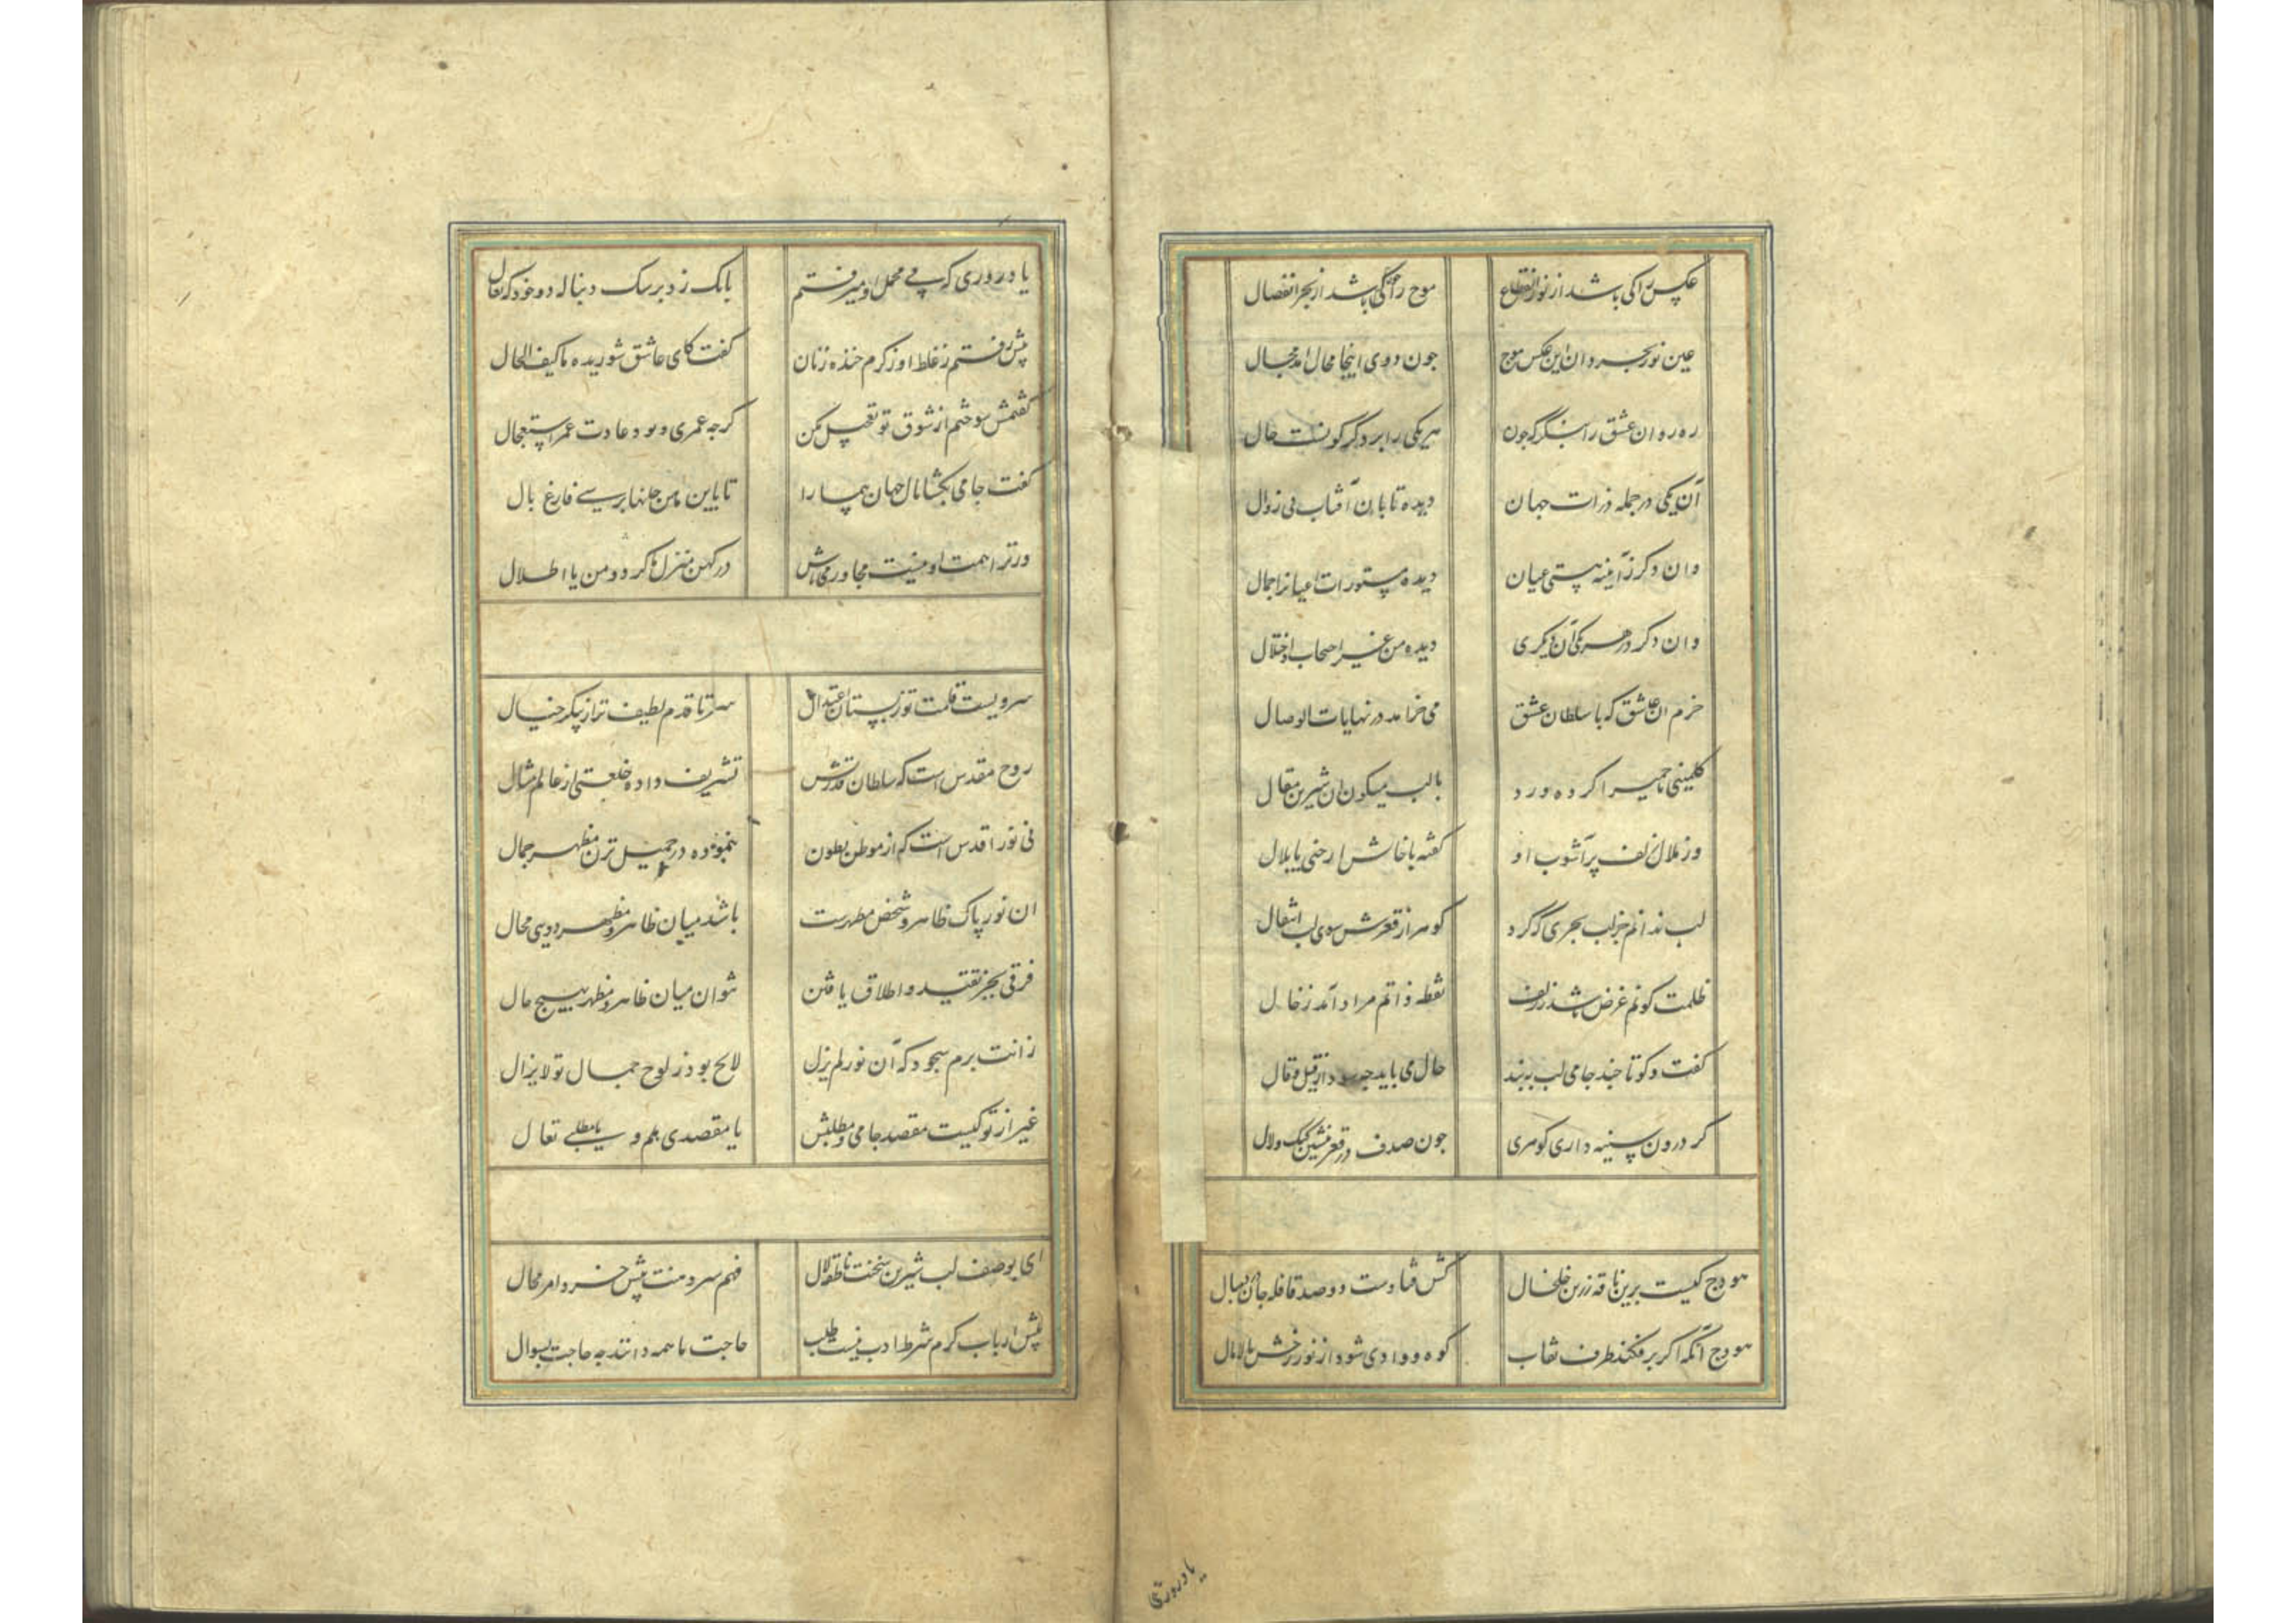 عکس را کی باشد از نور انقطاع موج را کی باشد از بحر انفصال
عین نور و بحر دان این عکس و موج چون دوی اینجا محال آمد مجال
ره روان عشق را بنگر که چون هر یکی را بر دگر گونست حال
آن یکی در جمله ذرات جهان دیده تابان آفتاب بی زوال
وان دگر ز آینه هستی عیان دیده مستورات اعیانرا جمال
وان دگر در هر یکی آن دیگری دیده من غیر احتجاب او اختلال
خرم ان عاشق که با سلطان عشق می خرامد در نهایات الوصال
کلمینی یا حمیرا کرده ورد با لب میگون ان شیرین مقال
وز ظلال زلف پر آشوب او گفته با خالش ارحنی یا بلال
لب ندانم جز لب بحری که کرد گوهر از قعرش سوی لب انتقال
ظلمت کونم غرض باشد ز زلف نقطه ذاتم مراد آمد ز خال
گفت و گو تا چند جامی لب ببند حال می باید چه سود از قیل و قال
گر درون سینه داری گوهری چون صدف در قعر بنشین گنگ و لال
هودج کیست برین ناقه زرین خلخال کش فتادست دو صد قافله جان بدنبال
هودج آنکه اگر برفکند طرف نقاب کوه و وادی شود از نور رخش مالامال
یاد روزی
یاد روزی که پی محمل او میرفتم بانگ زد بر سگ دنباله دو خود که تعال
پیش رفتم ز غلط او ز کرم خنده زنان گفت کای عاشق شوریده ما کیف الحال
گفتمش سوختم از شوق تو تعجیل مکن گرچه عمری و بود عادت عمر استعجال
گفت جامی بگشا بال جهان پیما را تا باین مامن جانها برسی فارغ بال
ور ترا همت او نیست مجاور می باش در کهن منزل ما گرد دمن یا اطلال
سرویست قامت تو ز بستان اعتدال سر تا قدم لطیف تر از پیکر خیال
روح مقدس است که سلطان قدرتش تشریف داده خلعتی از عالم مثال
نی نور اقدس است که از موطن بطون بنموده در جمیل ترین مظهر جمال
ان نور پاک ظاهر و شخص مطهرت باشد میان ظاهر و مظهر دویی محال
فرقی بجز تقید و اطلاق یافتن نتوان میان ظاهر و مظهر بهیچ حال
زانت برم سجود که آن نور لم یزل لایح بود ز لوح جمال تو لا یزال
غیر از تو کیست مقصد جامی و مطلبش یا مقصدی هلم و یا مطلبی تعال
ای بوصف لب شیرین سخنت ناطقه لال فهم سر دهنت پیش خرد امر محال
پیش ارباب کرم شرط ادب نیست طلب حاجت ما همه دانند چه حاجت بسوال